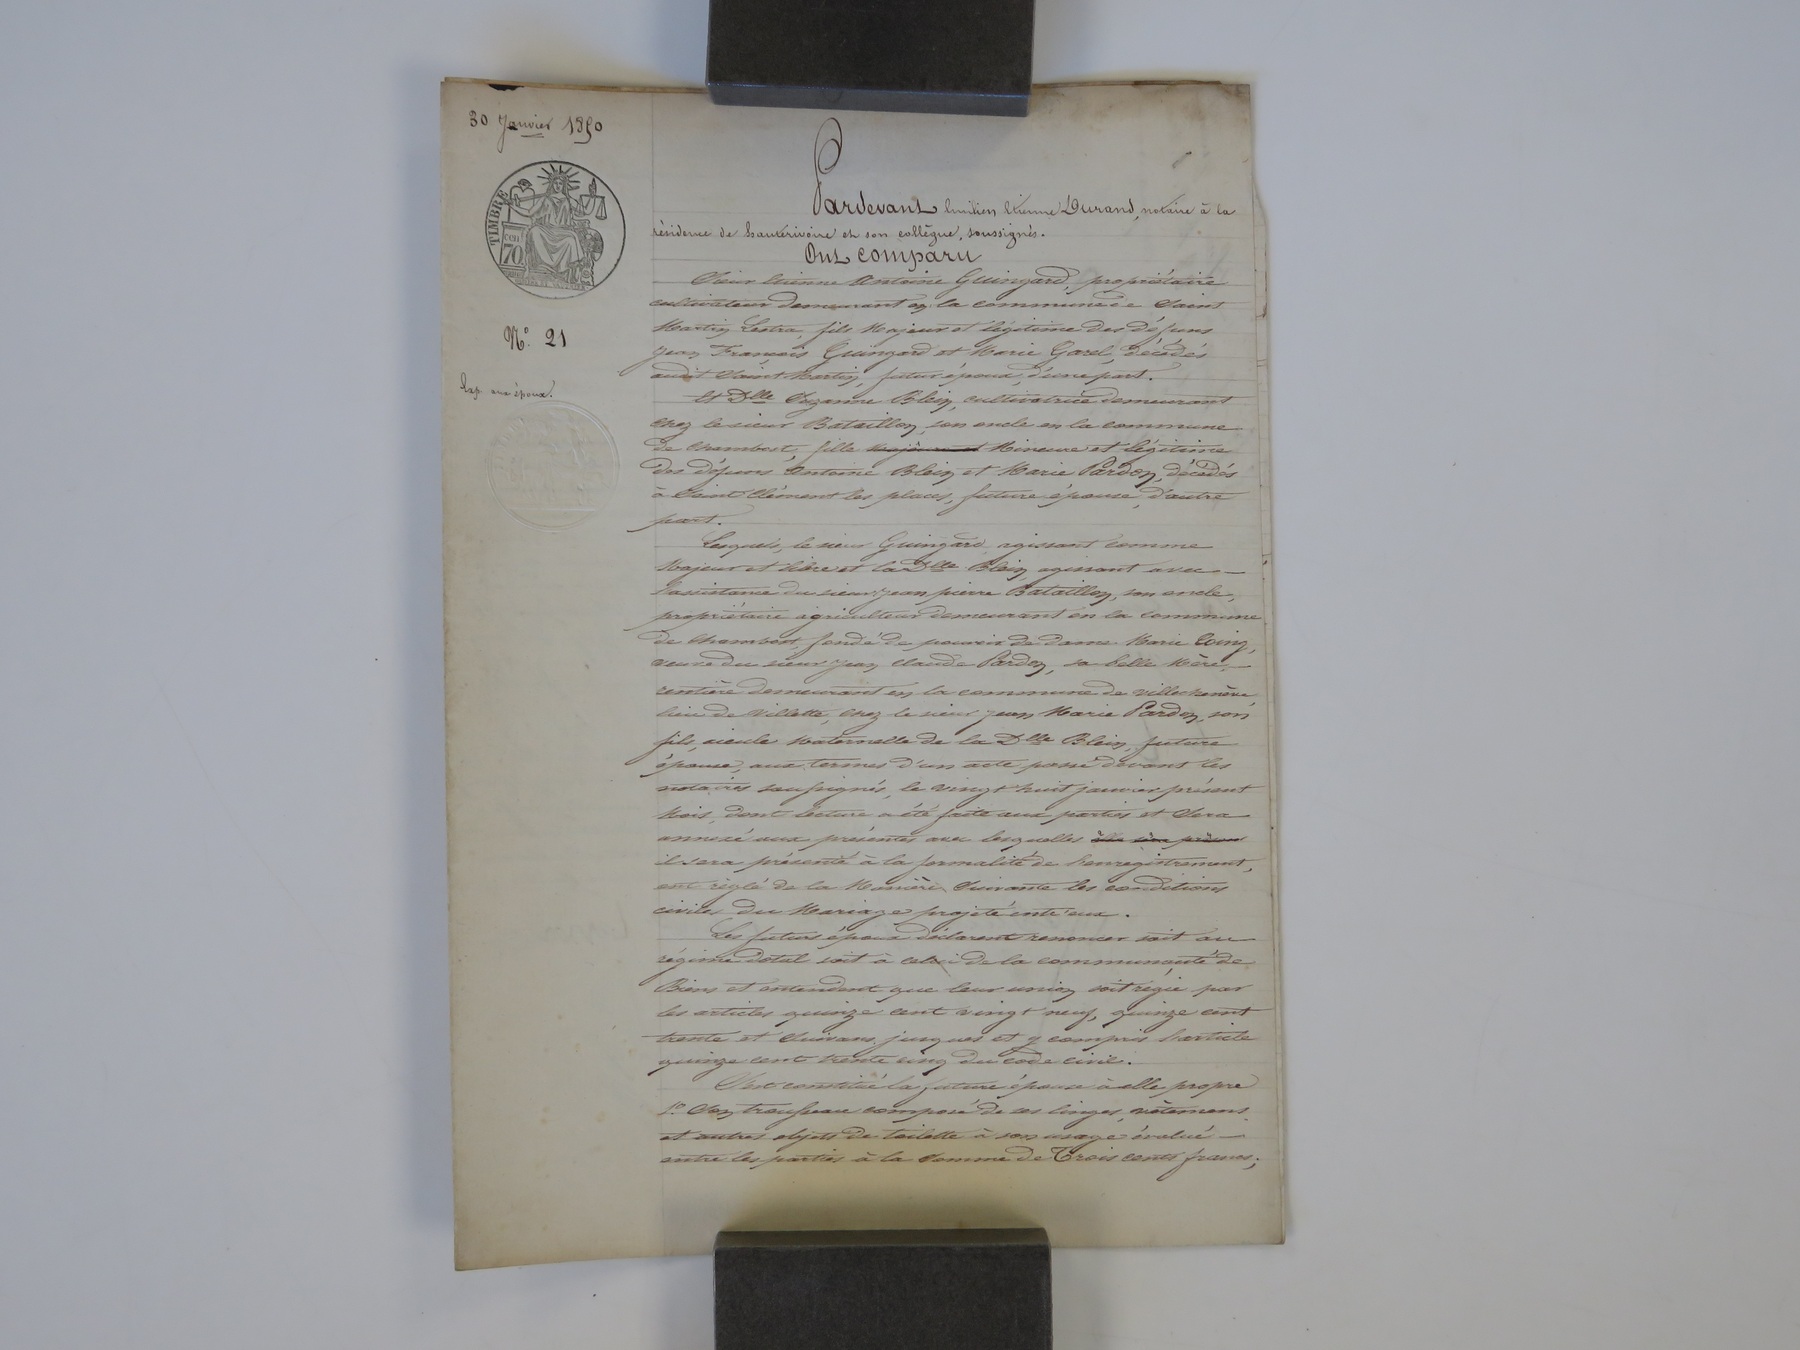 30 Janvier 1850
TIMBRE
cen.
70.
N.° 21
Exp. aux époux.
Pardevant Emilien Etienne Durand, notaire à la
résidence de hauterivoire et son collègue, soussignés.
Ont comparu
Sieur Etienne Antoine Guingard, propriétaire
cultivateur demeurant en la commune de Saint
Martin Lestra, fils Majeur et légitime des défuns
Jean François Guingard et Marie Garel, décédés
audit Saint Martin, futur époux, d'une part.
Et Dlle Suzanne Blein, cultivatrice demeurant
chez le sieur Bataillon, son oncle en la commune
de Chambost, fille Mineure et légitime
des défuns Antoine Blein et Marie Pardon, décédés
à Saint Clément les places, future épouse, d'autre
part.
Lesquels, le sieur Guingard, agissant comme
Majeur et libre et la Dlle Blein agissant avec
l'assistance du sieur Jean pierre Bataillon, son oncle,
propriétaire agriculteur demeurant en la commune
de Chambost, fondé de pouvoir de dame Marie Coing,
veuve du sieur Jean Claude Pardon, sa belle Mère,
rentière demeurant en la commune de villechenève
lieu de Villette, chez le sieur Jean Marie Pardon, son
fils, aieule Maternelle de la Dlle Blein, future
épouse, aux termes d'un acte passé devant les
notaires soussignés, le vingt huit janvier présent
Mois, dont lecture a été faite aux parties et sera
annexé aux présentes avec lesquelles
il sera présenté à la formalité de l'enregistrement,
ont réglé de la Manière Suivante les conditions
civiles du Mariage projeté entr'eux.
Les futurs époux déclarent renoncer soit au
régime dotal soit à celui de la communauté de
Biens et entendent que leur union soit régie par
les articles quinze cent vingt neuf, quinze cent
trente et Suivans jusques et y compris l'article
quinze cent trente cinq du code civil.
S'est constitué la future épouse à elle propre
1.° Son trousseau composé de ses linges, vêtemens
et autres objets de toilette à son usage évalué
entre les parties à la Somme de Trois cents francs;